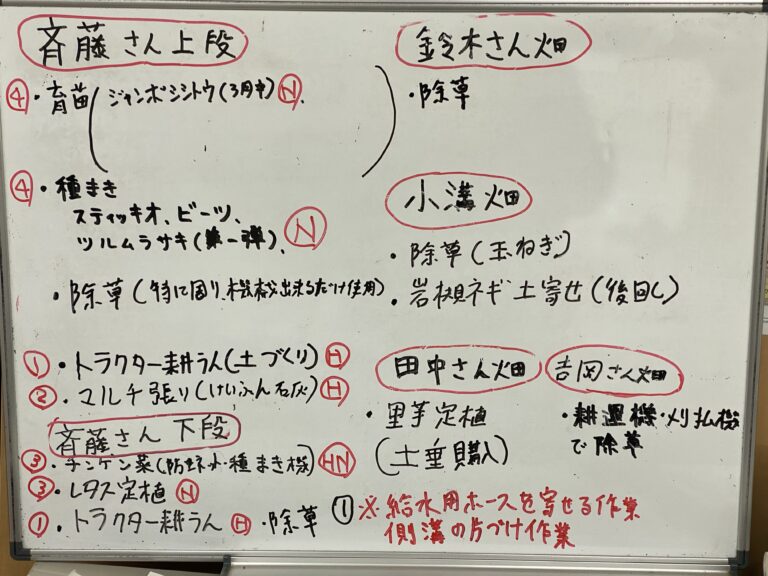 斉藤さん上段
④・育苗(ジャンボシシトウ(3月中)Ⓝ、 )
④・種まき
スティッキオ、ビーツ、
ツルムラサキ(第一弾)、Ⓝ
・除草(特に周り、機械出来るだけ使用)
①・トラクター耕うん(土づくり)Ⓗ
②・マルチ張り(けいふん石灰)Ⓗ
斉藤さん下段
③・チンゲン菜(防虫ネット・種まき機)HN
③・レタス定植Ⓝ
①・トラクター耕うんⒽ・除草
鈴木さん畑
・除草
小溝畑
・除草(玉ねぎ)
・岩槻ネギ土寄せ(後回し)
田中さん畑
・里芋定植
(土垂購入)
吉岡さん畑
・耕運機・刈払機
で除草
①※給水用ホースを寄せる作業
側溝の片づけ作業